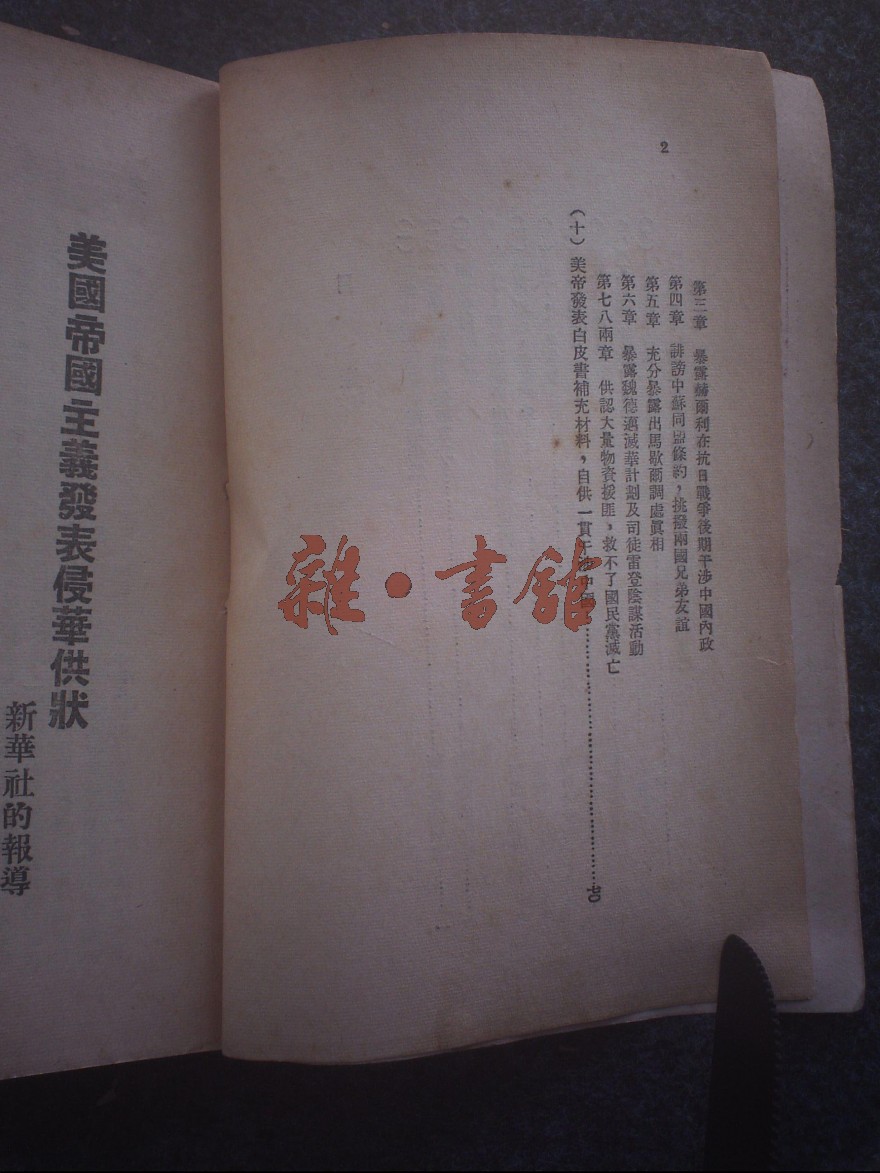 2
第三章　暴露赫爾利在抗日戰爭後期干涉中國內政
第四章　誹謗中蘇同盟條約，挑撥兩國兄弟友誼
第五章　充分暴露出馬歇爾調處眞相
第六章　暴露魏德邁滅華計劃及司徒雷登陰謀活動
第七八兩章　供認大量物資援匪，救不了國民黨滅亡
（十）美帝發表白皮書補充材料，自供一貫干涉中國……70
美國帝國主義發表侵華供狀
新華社的報導
雜·書舘